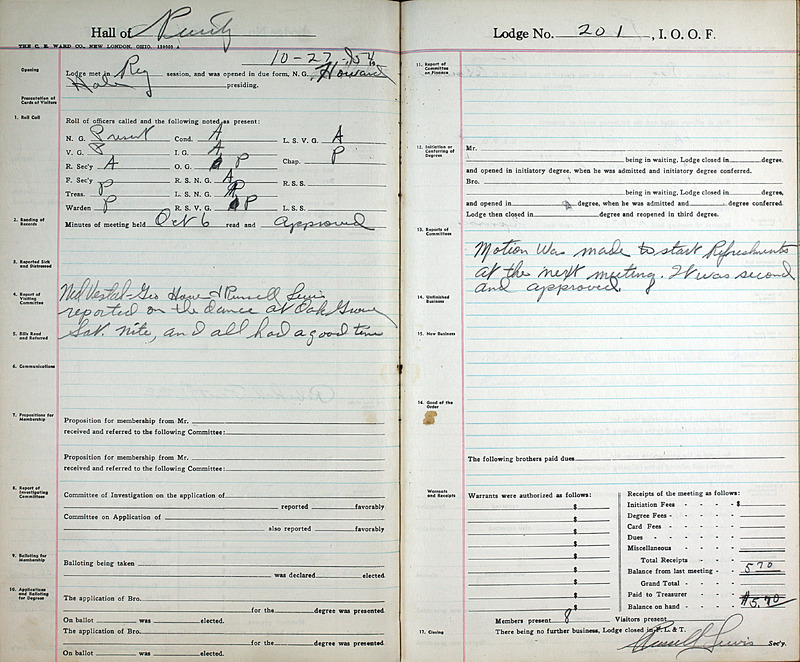 Hall of Purity
THE C. E. WARD CO., NEW LONDON, OHIO.
10-27-54
Opening
Lodge met in Reg session, and was opened in due form, N. G. Howard
Hale presiding.
Presentation of Cards of Visitors
1. Roll Call
Roll of officers called and the following noted as present:
N. G. Present Cond. A L. S. V. G. A
V. G. P I. G. A Chap. P
R. Sec'y A O. G. P
F. Sec'y P R. S. N. G. A R. S. S.
Treas. L. S. N. G. P
Warden P R. S. V. G. P L. S. S.
2. Reading of Records
Minutes of meeting held Oct 6 read and approved
3. Reported Sick and Distressed
4. Report of Visiting Committee
Ned Vestal - Geo Howe & Russell Lewis
reported on the dance at Oak Grove
Sat. nite, and all had a good time
5. Bills Read and Referred
6. Communications
7. Propositions for Membership
Proposition for membership from Mr.
received and referred to the following Committee:
Proposition for membership from Mr.
received and referred to the following Committee:
8. Report of Investigating Committees
Committee of Investigation on the application of
reported favorably
Committee on Application of
also reported favorably
9. Balloting for Membership
Balloting being taken
was declared elected.
10. Applications and Balloting for Degrees
The application of Bro.
for the degree was presented.
On ballot was elected.
The application of Bro.
for the degree was presented.
On ballot was elected.
Lodge No. 201, I. O. O. F.
11. Report of Committee on Finance
12. Initiation or Conferring of Degrees
Mr.
being in waiting, Lodge closed in degree,
and opened in initiatory degree, when he was admitted and initiatory degree conferred.
Bro.
being in waiting, Lodge closed in degree,
and opened in degree, when he was admitted and degree conferred.
Lodge then closed in degree and reopened in third degree.
13. Reports of Committees
Motion was made to start Refreshments
at the next meeting. It was second
and approved.
14. Unfinished Business
15. New Business
16. Good of the Order
The following brothers paid dues
Warrants and Receipts
Warrants were authorized as follows:
$
$
$
$
$
$
$
$
$
Receipts of the meeting as follows:
Initiation Fees $
Degree Fees
Card Fees
Dues
Miscellaneous
Total Receipts
Balance from last meeting 5.70
Grand Total
Paid to Treasurer
Balance on hand $5.70
Members present 8 Visitors present
17. Closing
There being no further business, Lodge closed in F. L. & T.
Russell Lewis Sec'y.